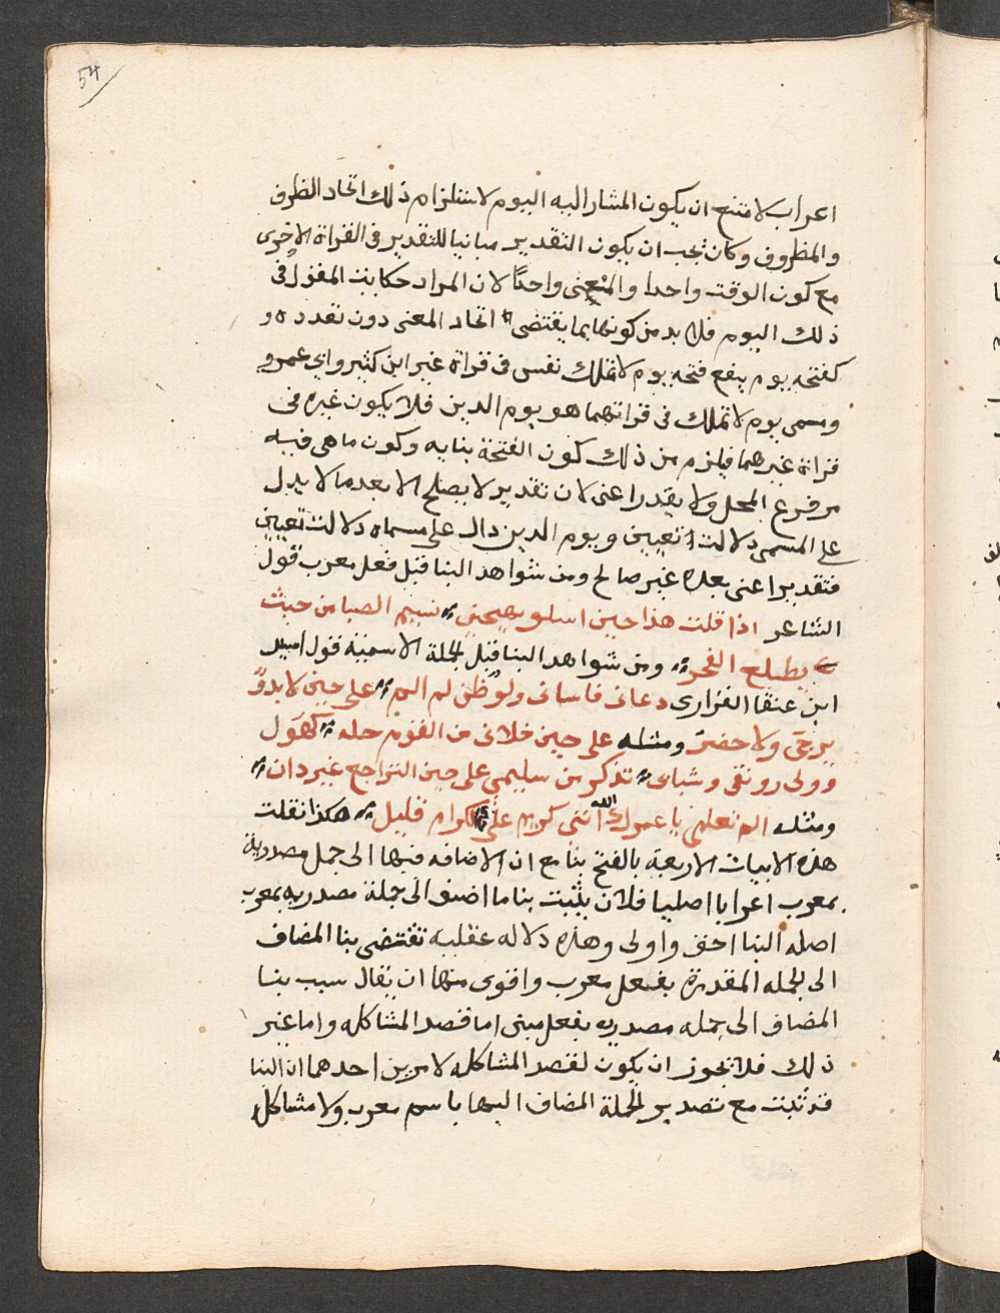 54
اعراب لامتنع ان يكون المشار اليه اليوم لاستلزام ذلك اتحاد الظرف
والمظروف وكان يجب ان يكون التقدير مباينا للتقدير في القراة الاخرى
مع كون الوقت واحدا والمعنى واحدا لان المراد حكاية المقول في
ذلك اليوم فلا بد من كونها بما يقتضى اتحاد المعنى دون تعدده و
كفتحه يوم ينفع فتحه يوم لا تملك نفس في قراة غير ابن كثير وابي عمرو
ومسمى يوم لا تملك في قراتهما هو يوم الدين فلا يكون غيره في
قراة غيرهما فيلزم من ذلك كون الفتحة بنايه وكون ما هي فيه
مرفوع المحل ولا يقدر اعنى لان تقدير لا يصلح الا بعد ما لا يدل
على المسمى دلالت تعيين ويوم الدين دال على مسماه دلالت تعيين
فتقدير اعنى بعده غير صالح ومن شواهد البنا قبل فعل معرب قول
الشاعر اذا قلت هذا حين اسلو يهيجنى نسيم الصبا من حيث
يطلع الفجر ومن شواهد البنا قبل لجملة الاسمية قول اسيد
ابن عنقا الفزارى دعانى فاسانى ولو ظن لم الم على حين لا بدو
يرجى ولا حضر ومثله على حين خلانى من القوم حله كهول
وولى رونقى وشبابى تذكر من سليمى على حين التراجع غير دان
ومثله الم تعلمى يا عمرك الله اننى كريم على الكرام قليل هكذا نقلت
هذه الابيات الاربعة بالفتح بنا مع ان الاضافه فيها الى جمل مصدرية
بمعرب اعرابا اصليا فلان يثبت بنا ما اضيف الى جملة مصدريه بمعرب
اصله البنا احق واولى وهذه دلاله عقلية تقتضى بنا المضاف
الى لجمله المقدرة بفعل معرب واقوى منها ان يقال سبب بنا
المضاف الى جمله مصدريه بفعل مبنى اما قصد المشاكله واما غير
ذلك فلا يجوز ان يكون لقصد المشاكله لامرين احدهما ان البنا
قد ثبت مع تصدير لجملة المضاف اليها باسم معرب ولا مشاكل